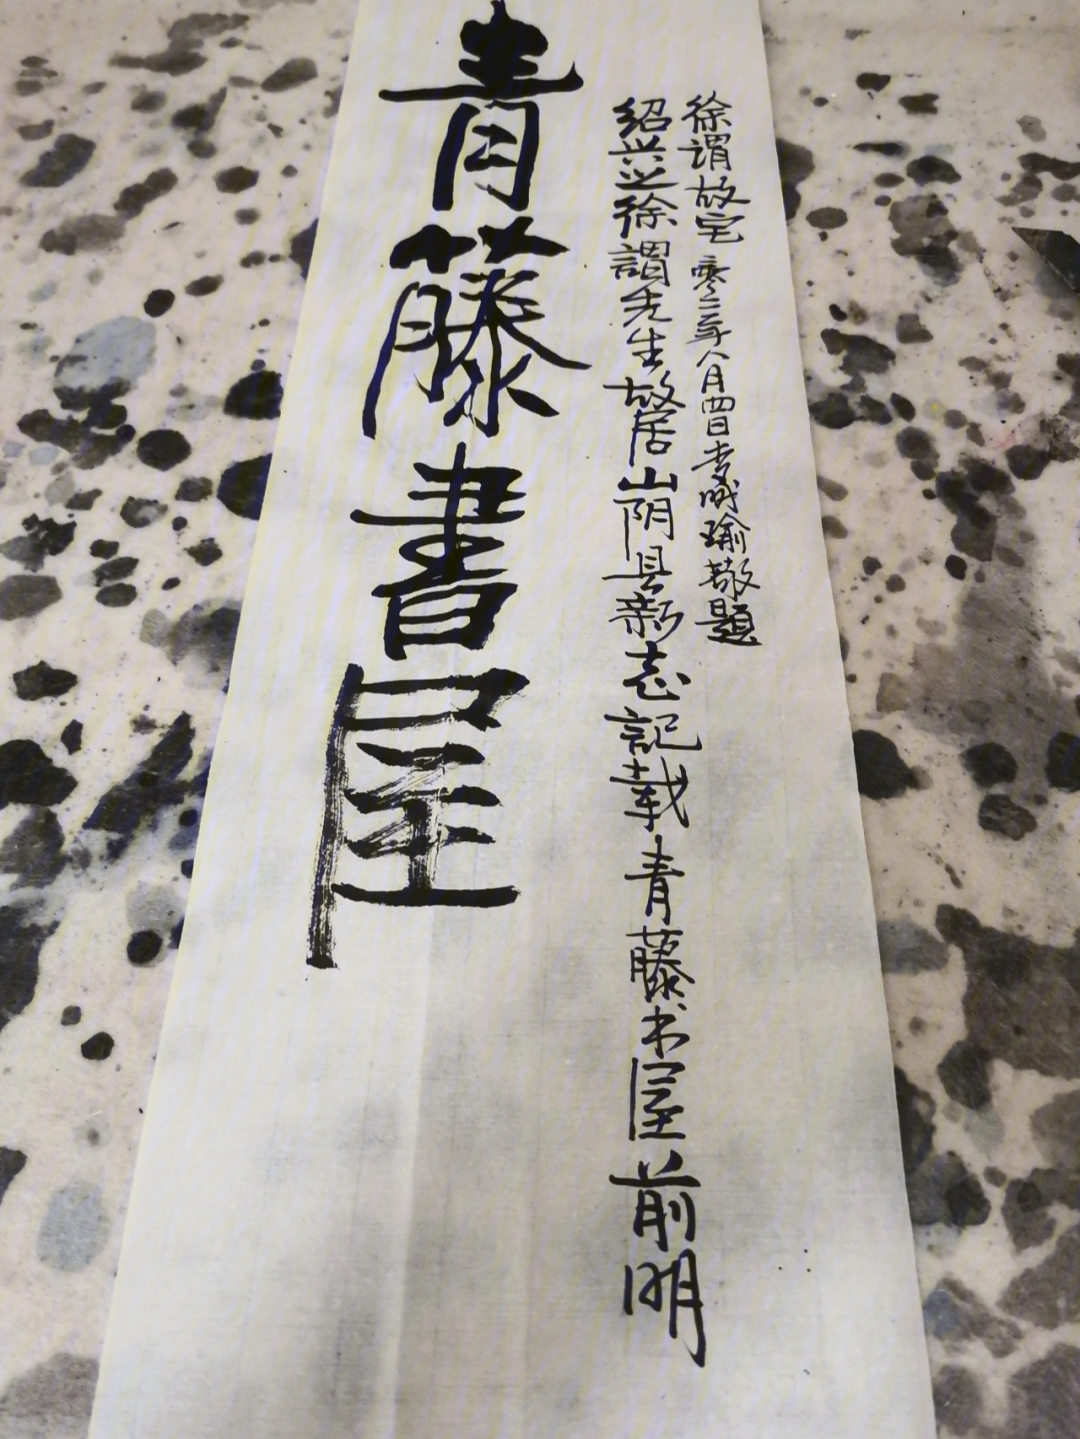 青藤書屋
绍兴之徐謂先生故居山阴县新志記载青藤书屋前明
徐谓故宅 零二年八月四日 瑜敬題